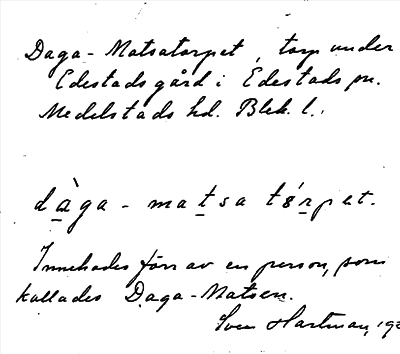 Daga-Matsatorpet, torp under
Edestads gård i Edestads sn.
Medelstads hd. Blek. l.
dàga - matsa tórpet.
Innehades förr av en person, som
kallades Daga-Matsen.
Sven Hartman,